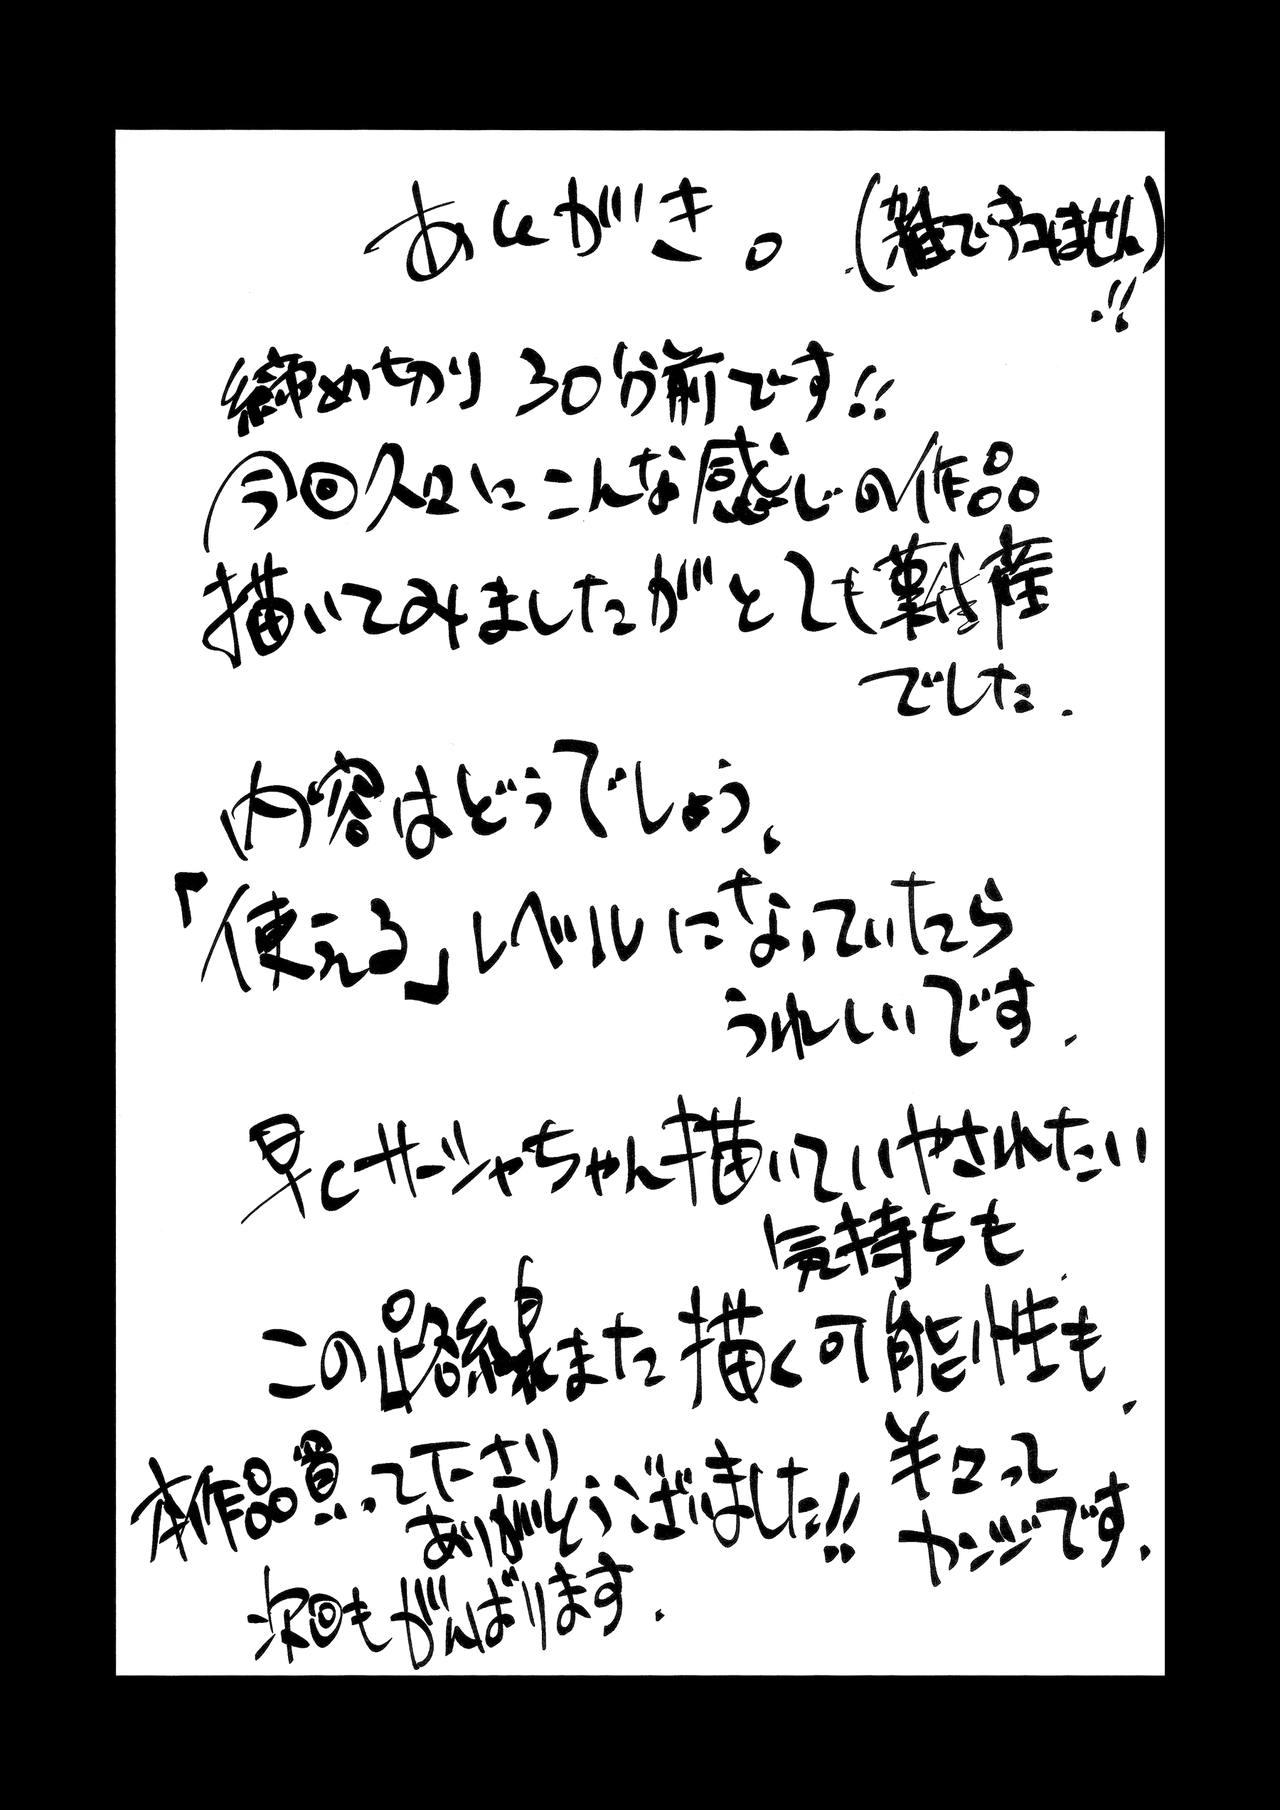 あとがき。
(雑ですみません)!!
締め切り30分前です!!
今回久々にこんな感じの作品
描いてみましたがとても難産
でした.
内容はどうでしょう、
「使える」レベルになっていたら
うれしいです.
早くサーシャちゃん描いていやされたい
気持ちも
この路線また描く可能性も、
半々って
カンジです.
本作品買って下さり
ありがとうございました!!
次回もがんばります.